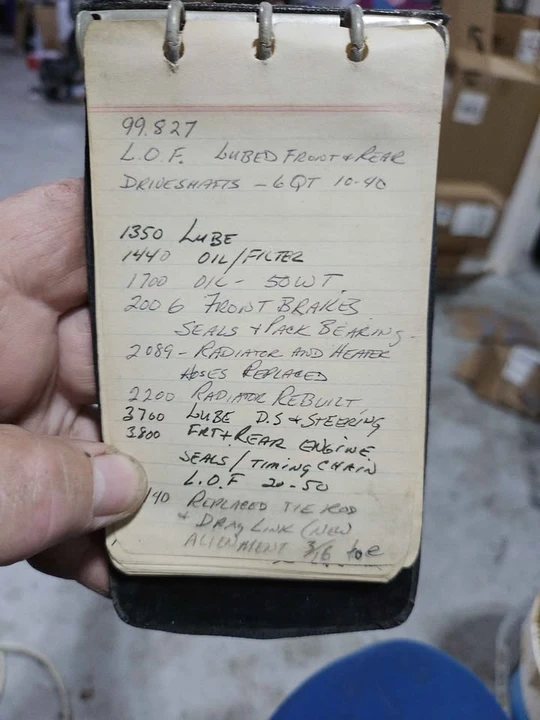 99.827
L.O.F. LUBED FRONT & REAR
DRIVESHAFTS - 6 QT 10-40
1350 LUBE
1440 OIL/FILTER
1700 OIL - 50WT.
2006 FRONT BRAKES
SEALS & PACK BEARING-
2089 - RADIATOR AND HEATER
HOSES REPLACED
2200 RADIATOR REBUILT
3700 LUBE D.S & STEERING
3800 FRT & REAR ENGINE
SEALS/TIMING CHAIN
L.O.F 20-50
140 REPLACED TIE ROD
& DRAG LINK (NEW
ALIGNMENT 3/16 toe